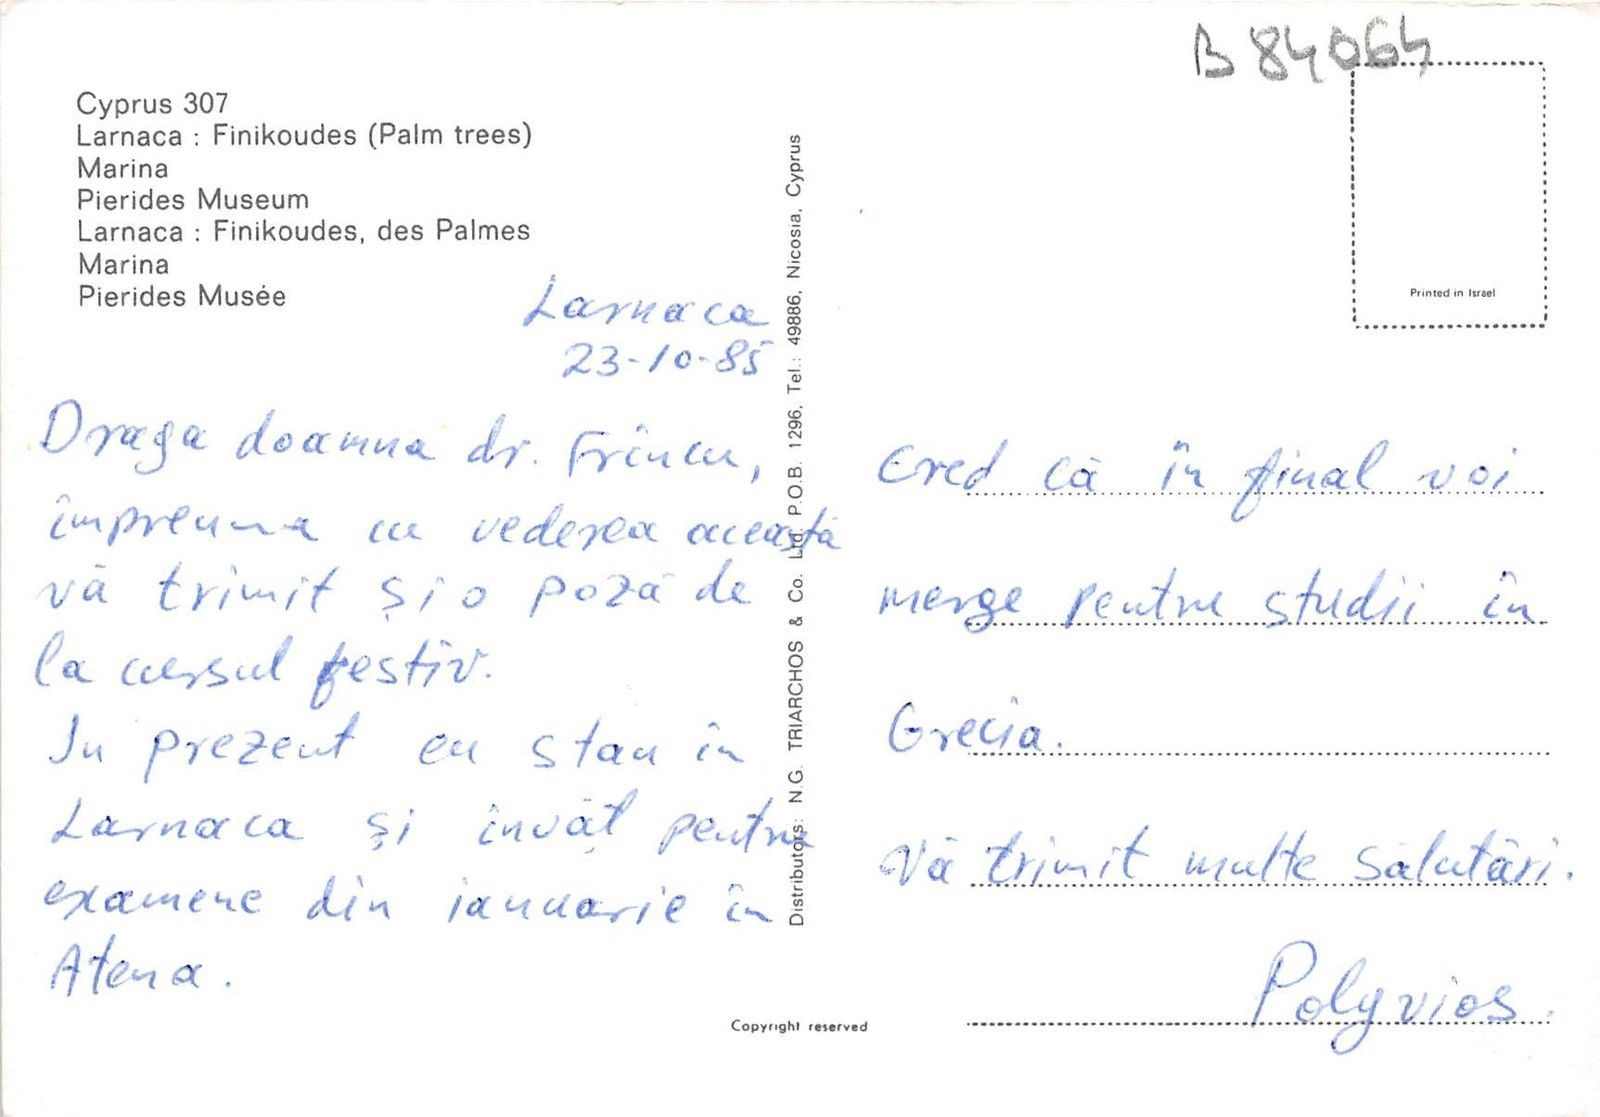 B 84064
Cyprus 307
Larnaca : Finikoudes (Palm trees)
Marina
Pierides Museum
Larnaca : Finikoudes, des Palmes
Marina
Pierides Musée
Larnaca
23-10-85
Draga doamna dr. Frîncu,
împreuna cu vederea aceasta
vă trimit și o poză de
la cursul festiv.
In prezent eu stau în
Larnaca și învăț pentru
examene din ianuarie în
Atena.
Distributors: N.G. TRIARCHOS & Co. Ltd. P.O.B. 1296, Tel.: 49886, Nicosia, Cyprus
Copyright reserved
Printed in Israel
Cred că în final voi
merge pentru studii în
Grecia.
Vă trimit multe salutări.
Polyvios.